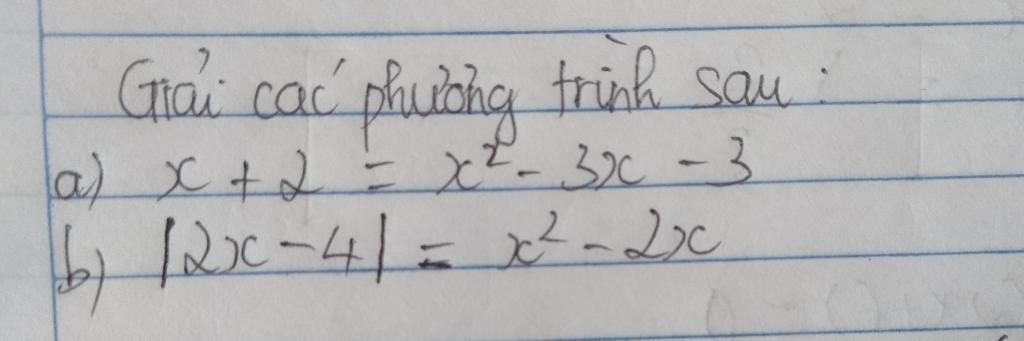 Giải các phương trình sau :
a) x + 2 = x² - 3x - 3
b) |2x - 4| = x² - 2x